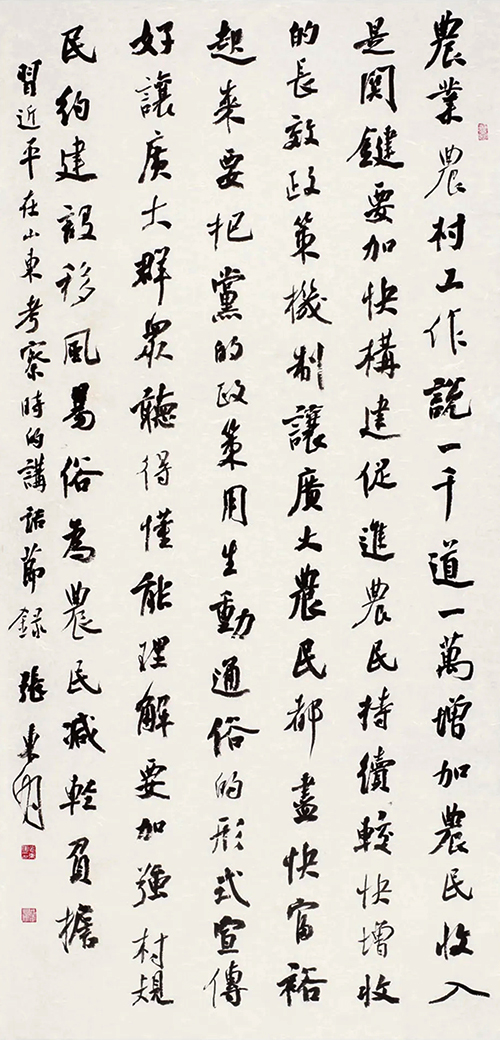 農業農村工作說一千道一萬增加農民收入
是関鍵要加快構建促進農民持續較快增收
的長效政策機制讓廣大農民都盡快富裕
起來要把黨的政策用生動通俗的形式宣傳
好讓廣大群眾聽得懂能理解要加強村規
民約建設移風易俗為農民減輕負擔
習近平在山東考察時的講話節錄 張東明